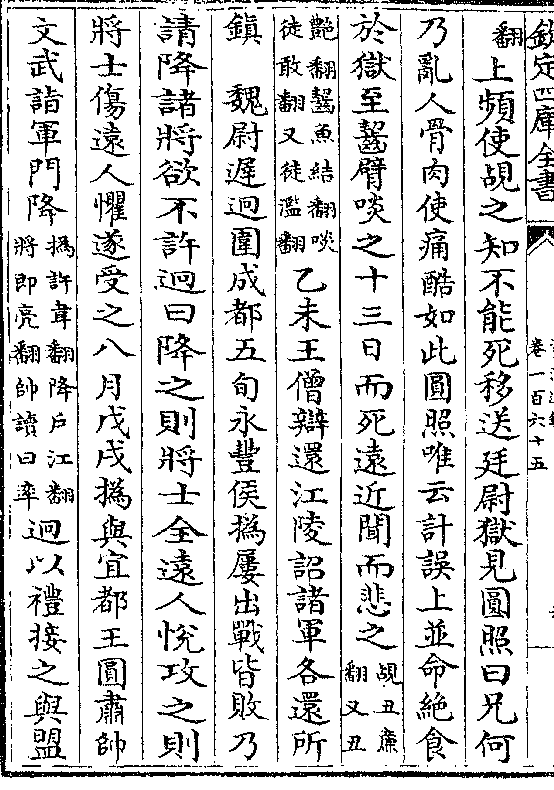 欽定四庫全書
卷一百六十五
翻上頻使覘之知不能死移送廷尉獄見圓照曰兄何
乃亂人骨肉使痛酷如此圓照唯云計誤上並命絶食
於獄至齧臂啖之十三日而死遠近聞而悲之覘丑廉翻又丑
艷翻齧魚結翻啖徒敢翻又徒濫翻乙未王僧辯還江陵詔諸軍各還所
鎮　魏尉遲迥圍成都五旬永豐侯撝屢出戰皆敗乃
請降諸將欲不許迥曰降之則將士全遠人悅攻之則
將士傷遠人懼遂受之八月戊戌撝與宜都王圓肅帥
文武詣軍門降撝許韋翻降戶江翻將即亮翻帥讀曰率迥以禮接之與盟